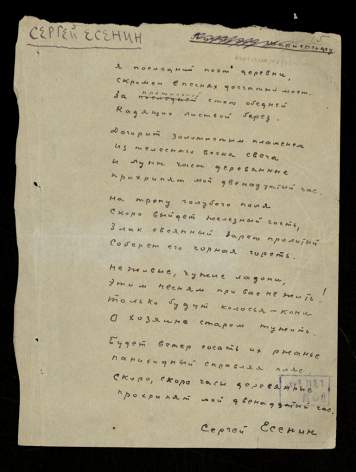 СЕРГЕЙ ЕСЕНИН
Мариенгофу
Я последний поэт деревни,
Скромен в песнях дощатый мост.
За прощальной стою обедней
Кадящих листвой берез.
Догорит золотистым пламенем
Из телесного воска свеча
И луны часы деревянные
Прохрипят мой двенадцатый час.
На тропу голубого поля
Скоро выйдет железный гость,
Злак овсяный зарею пролитый
Соберет его чорная горсть.
Не живые, чужие ладони,
Этим песням при вас не жить!
Только будут колосья-кони
О хозяине старом тужить.
Будет ветер сосать их ржанье
Панихидный справляя пляс
Скоро, скоро часы деревянные
Прохрипят мой двенадцатый час.
Сергей Есенин